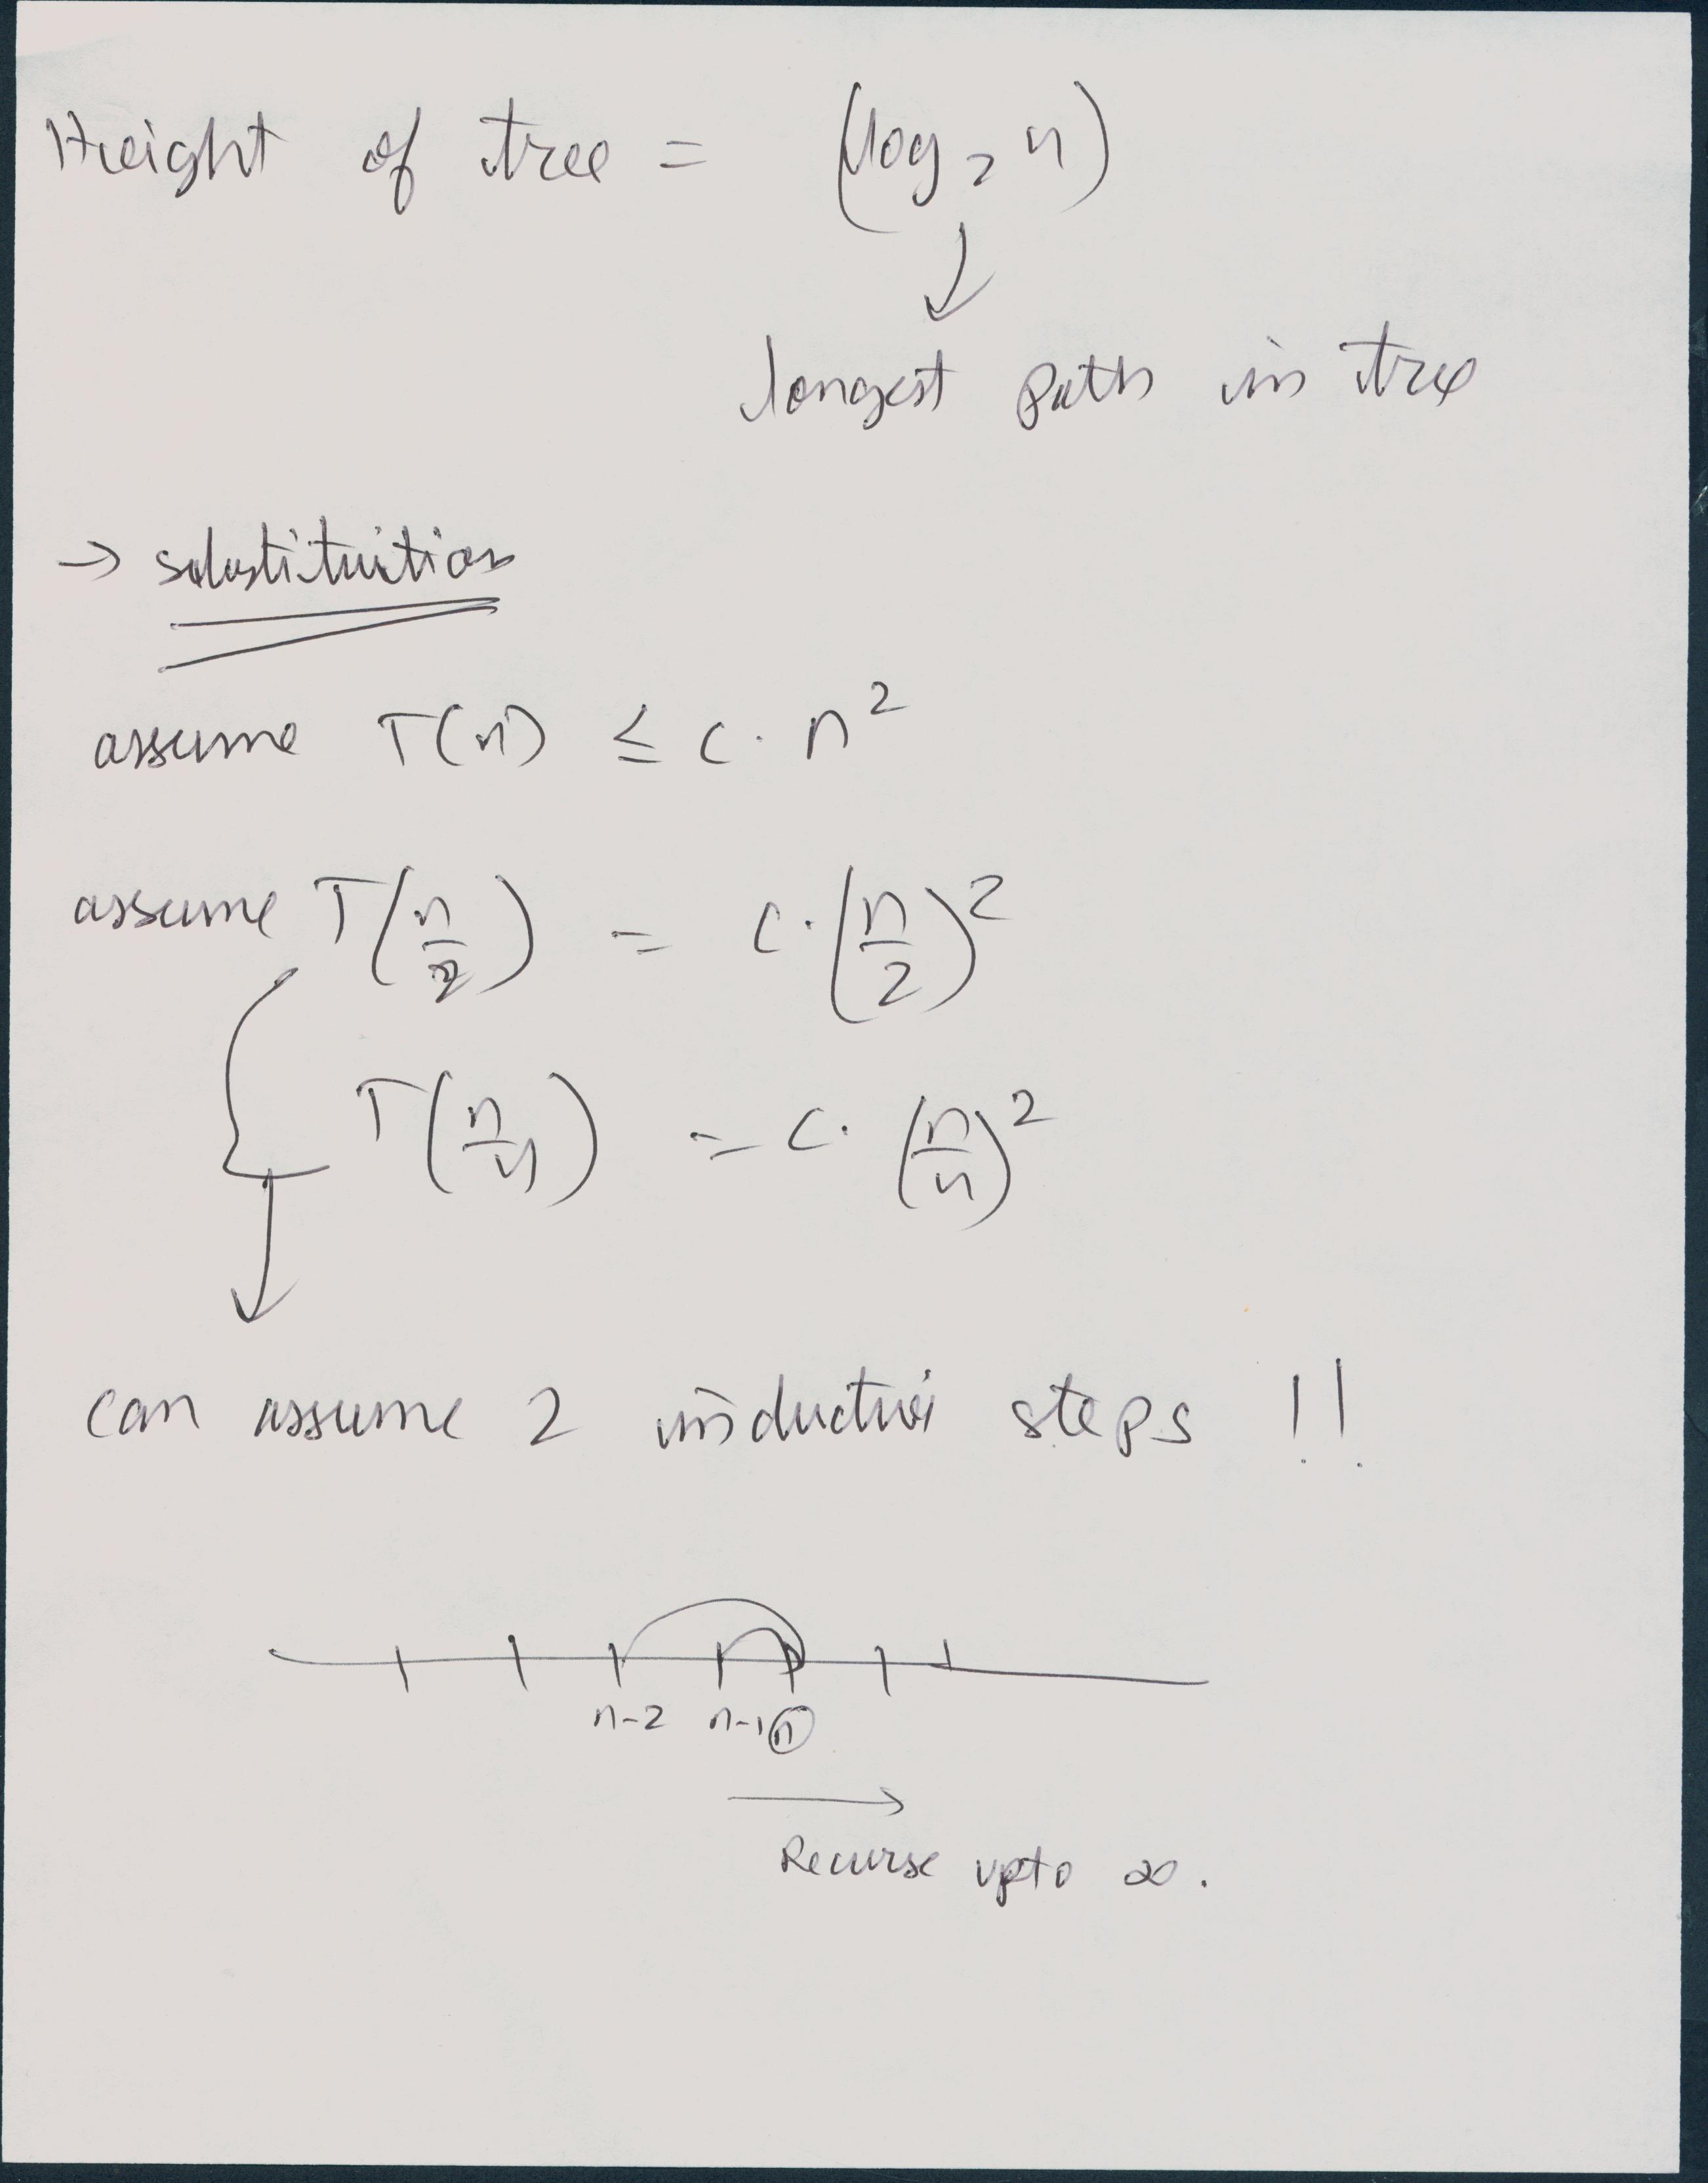 Height of tree = (log₂ n)
longest path in tree
→ substituition
assume T(n) ≤ c · n²
assume T(n/2) = c · (n/2)²
T(n/4) = c · (n/4)²
can assume 2 inductive steps !!
n-2 n-1 n
Recurse upto ∞.